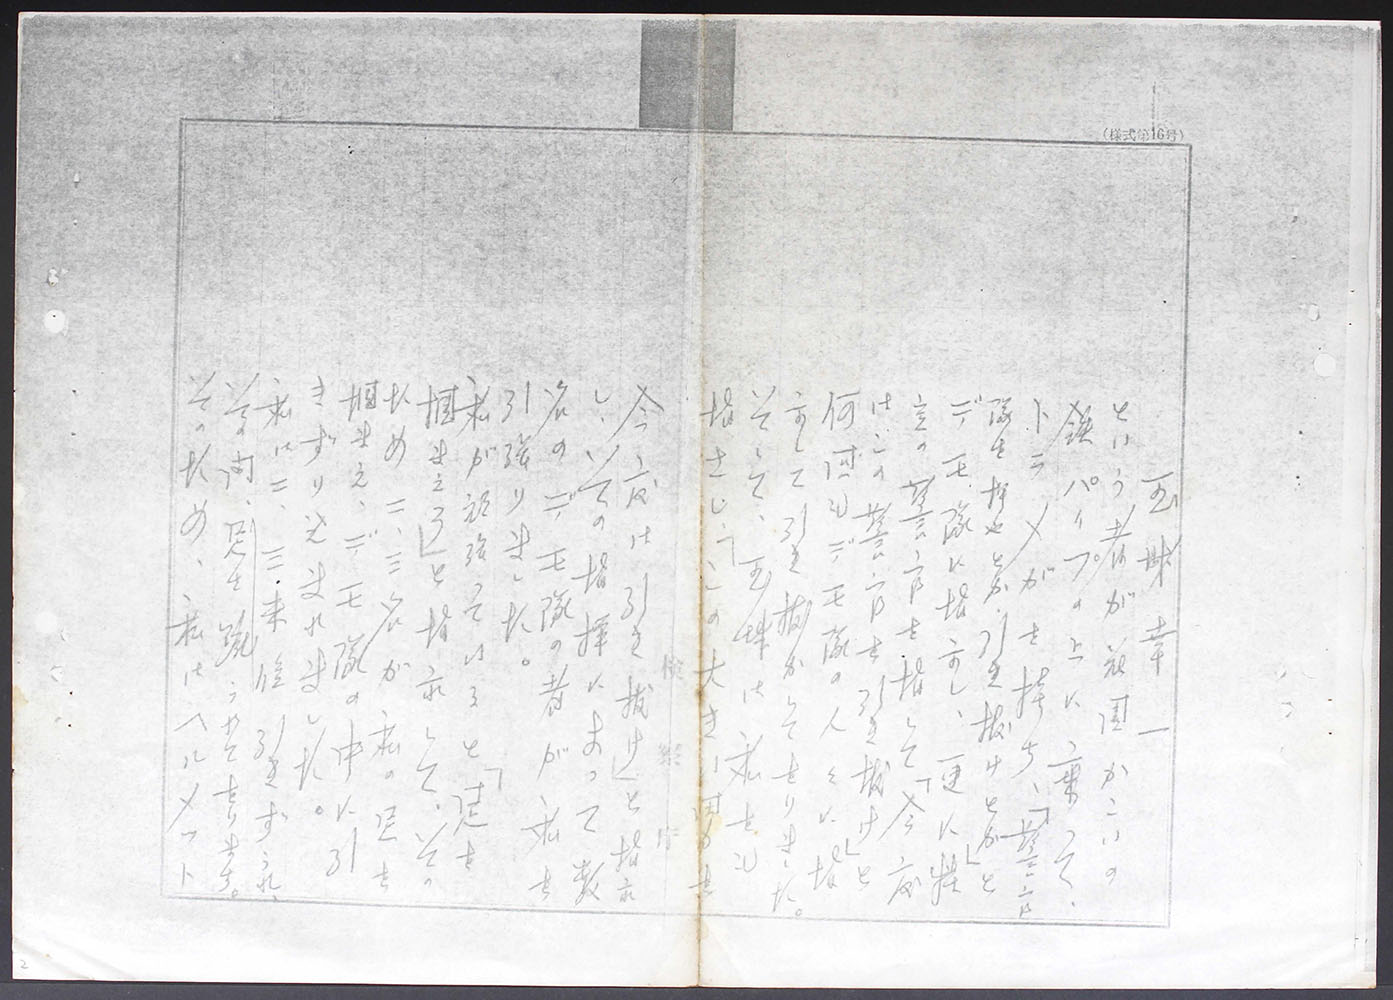 (様式第16号)
玉城幸一
という者が花園かこいの
鉄パイプの上に乗って、
トラメガを持ち、「警官
隊を押せとか、引き抜けとか」と
デモ隊に指示し、更に特
定の警官を指して「今度
はこの警官を引き抜け」と
何回もデモ隊の人々に指
示して引き抜かしておりました。
そして、玉城は私をも
指さし、「この大きい男を
検察庁
今度は引き抜け」と指示
し、その指揮によって数
名のデモ隊の者が私を
引張りました。
私が頑張っていると「足を
掴まえろ」と指示して、その
ため二、三名が私の足を
掴まえ、デモ隊の中に引
きずり込まれました。
私は二、三米位引きずられ、
その間、足を蹴られております。
そのため、私はヘルメット
2